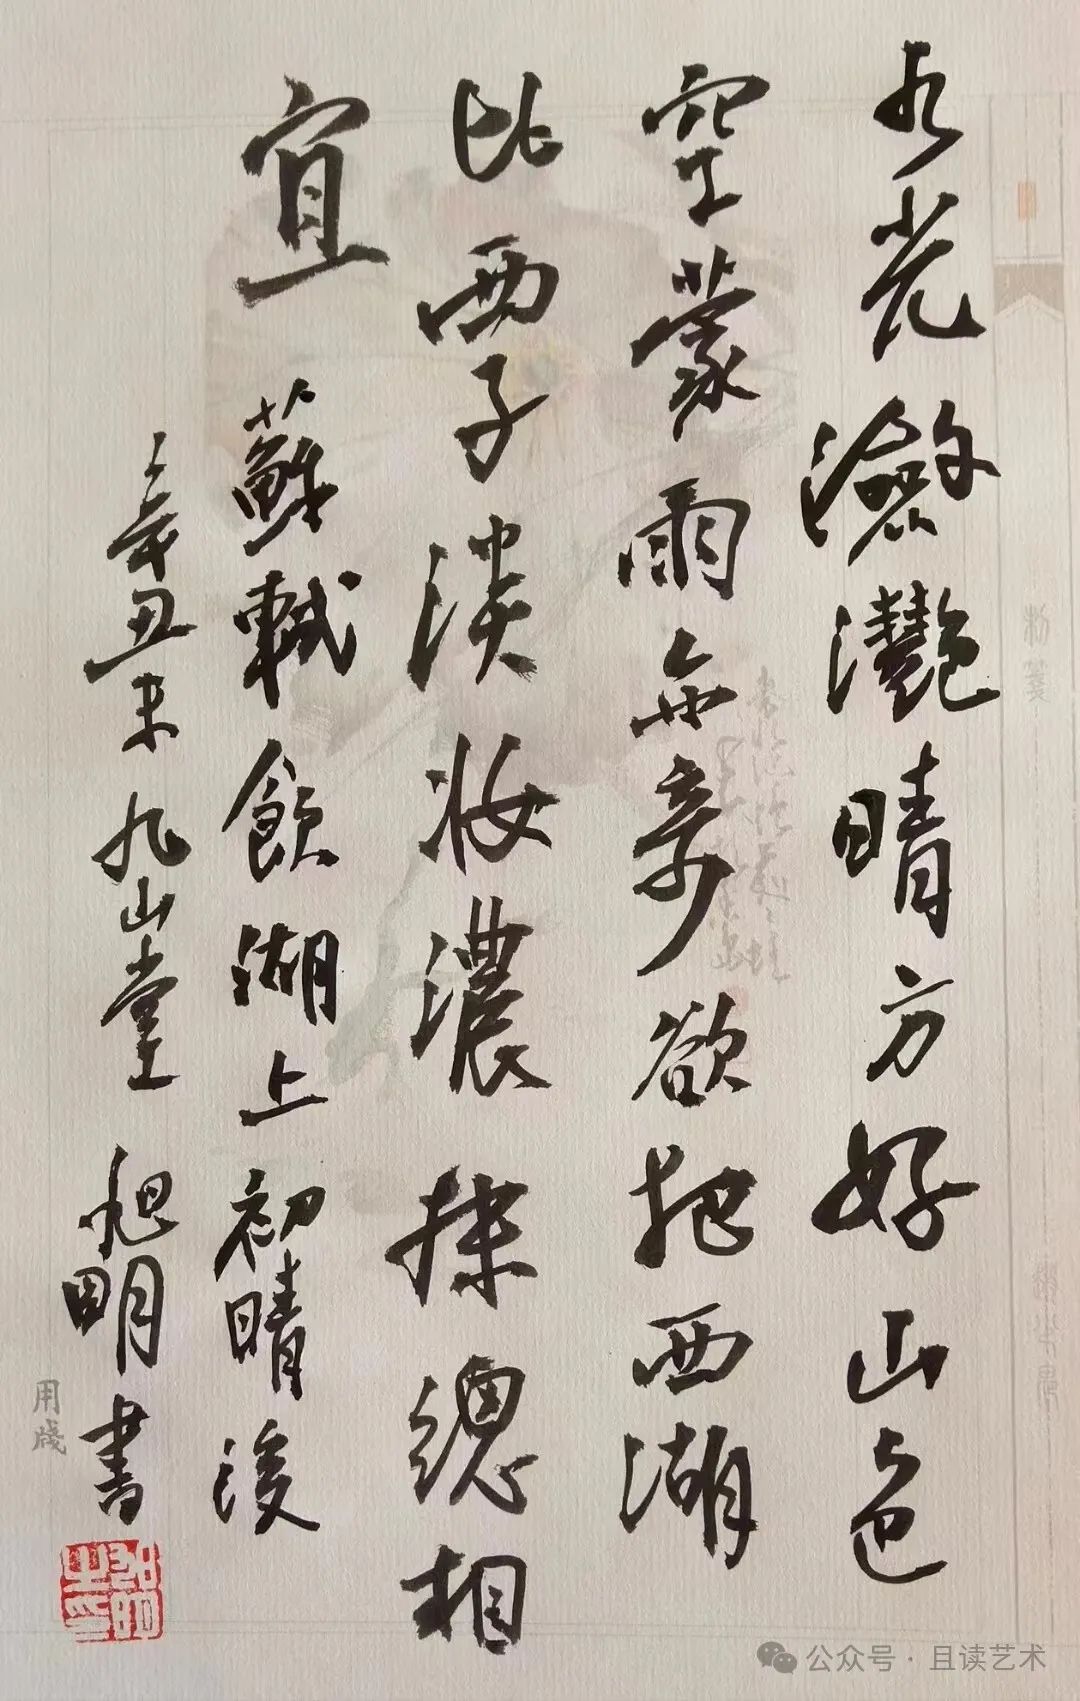 水光瀲灧晴方好山色
空蒙雨亦奇欲把西湖
比西子淡妝濃抹總相
宜 蘇軾飲湖上初晴後
辛丑末九山堂 旭明書
用牋
公众号 · 且读艺术